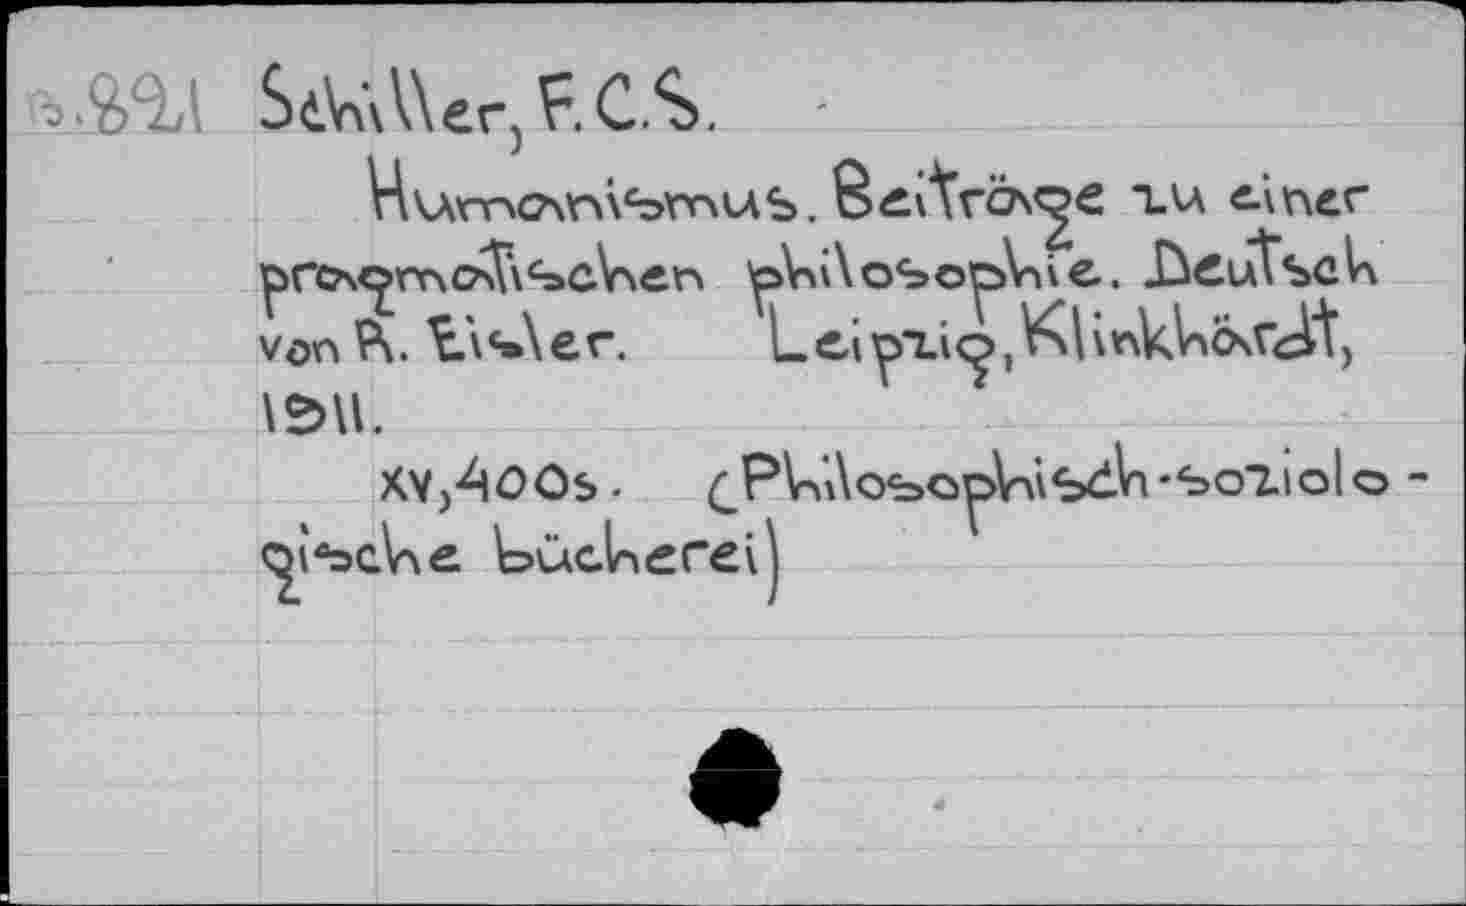 Schiller, F.C.S.
Humanismus. Beiträge zu einer
pragmatischen philosophie. Deutsch
von R. Eisler. Leipzig, Klinkhardt,
1911.
xv, 400s. (Philosophisch-soziolo-
gische bücherei)